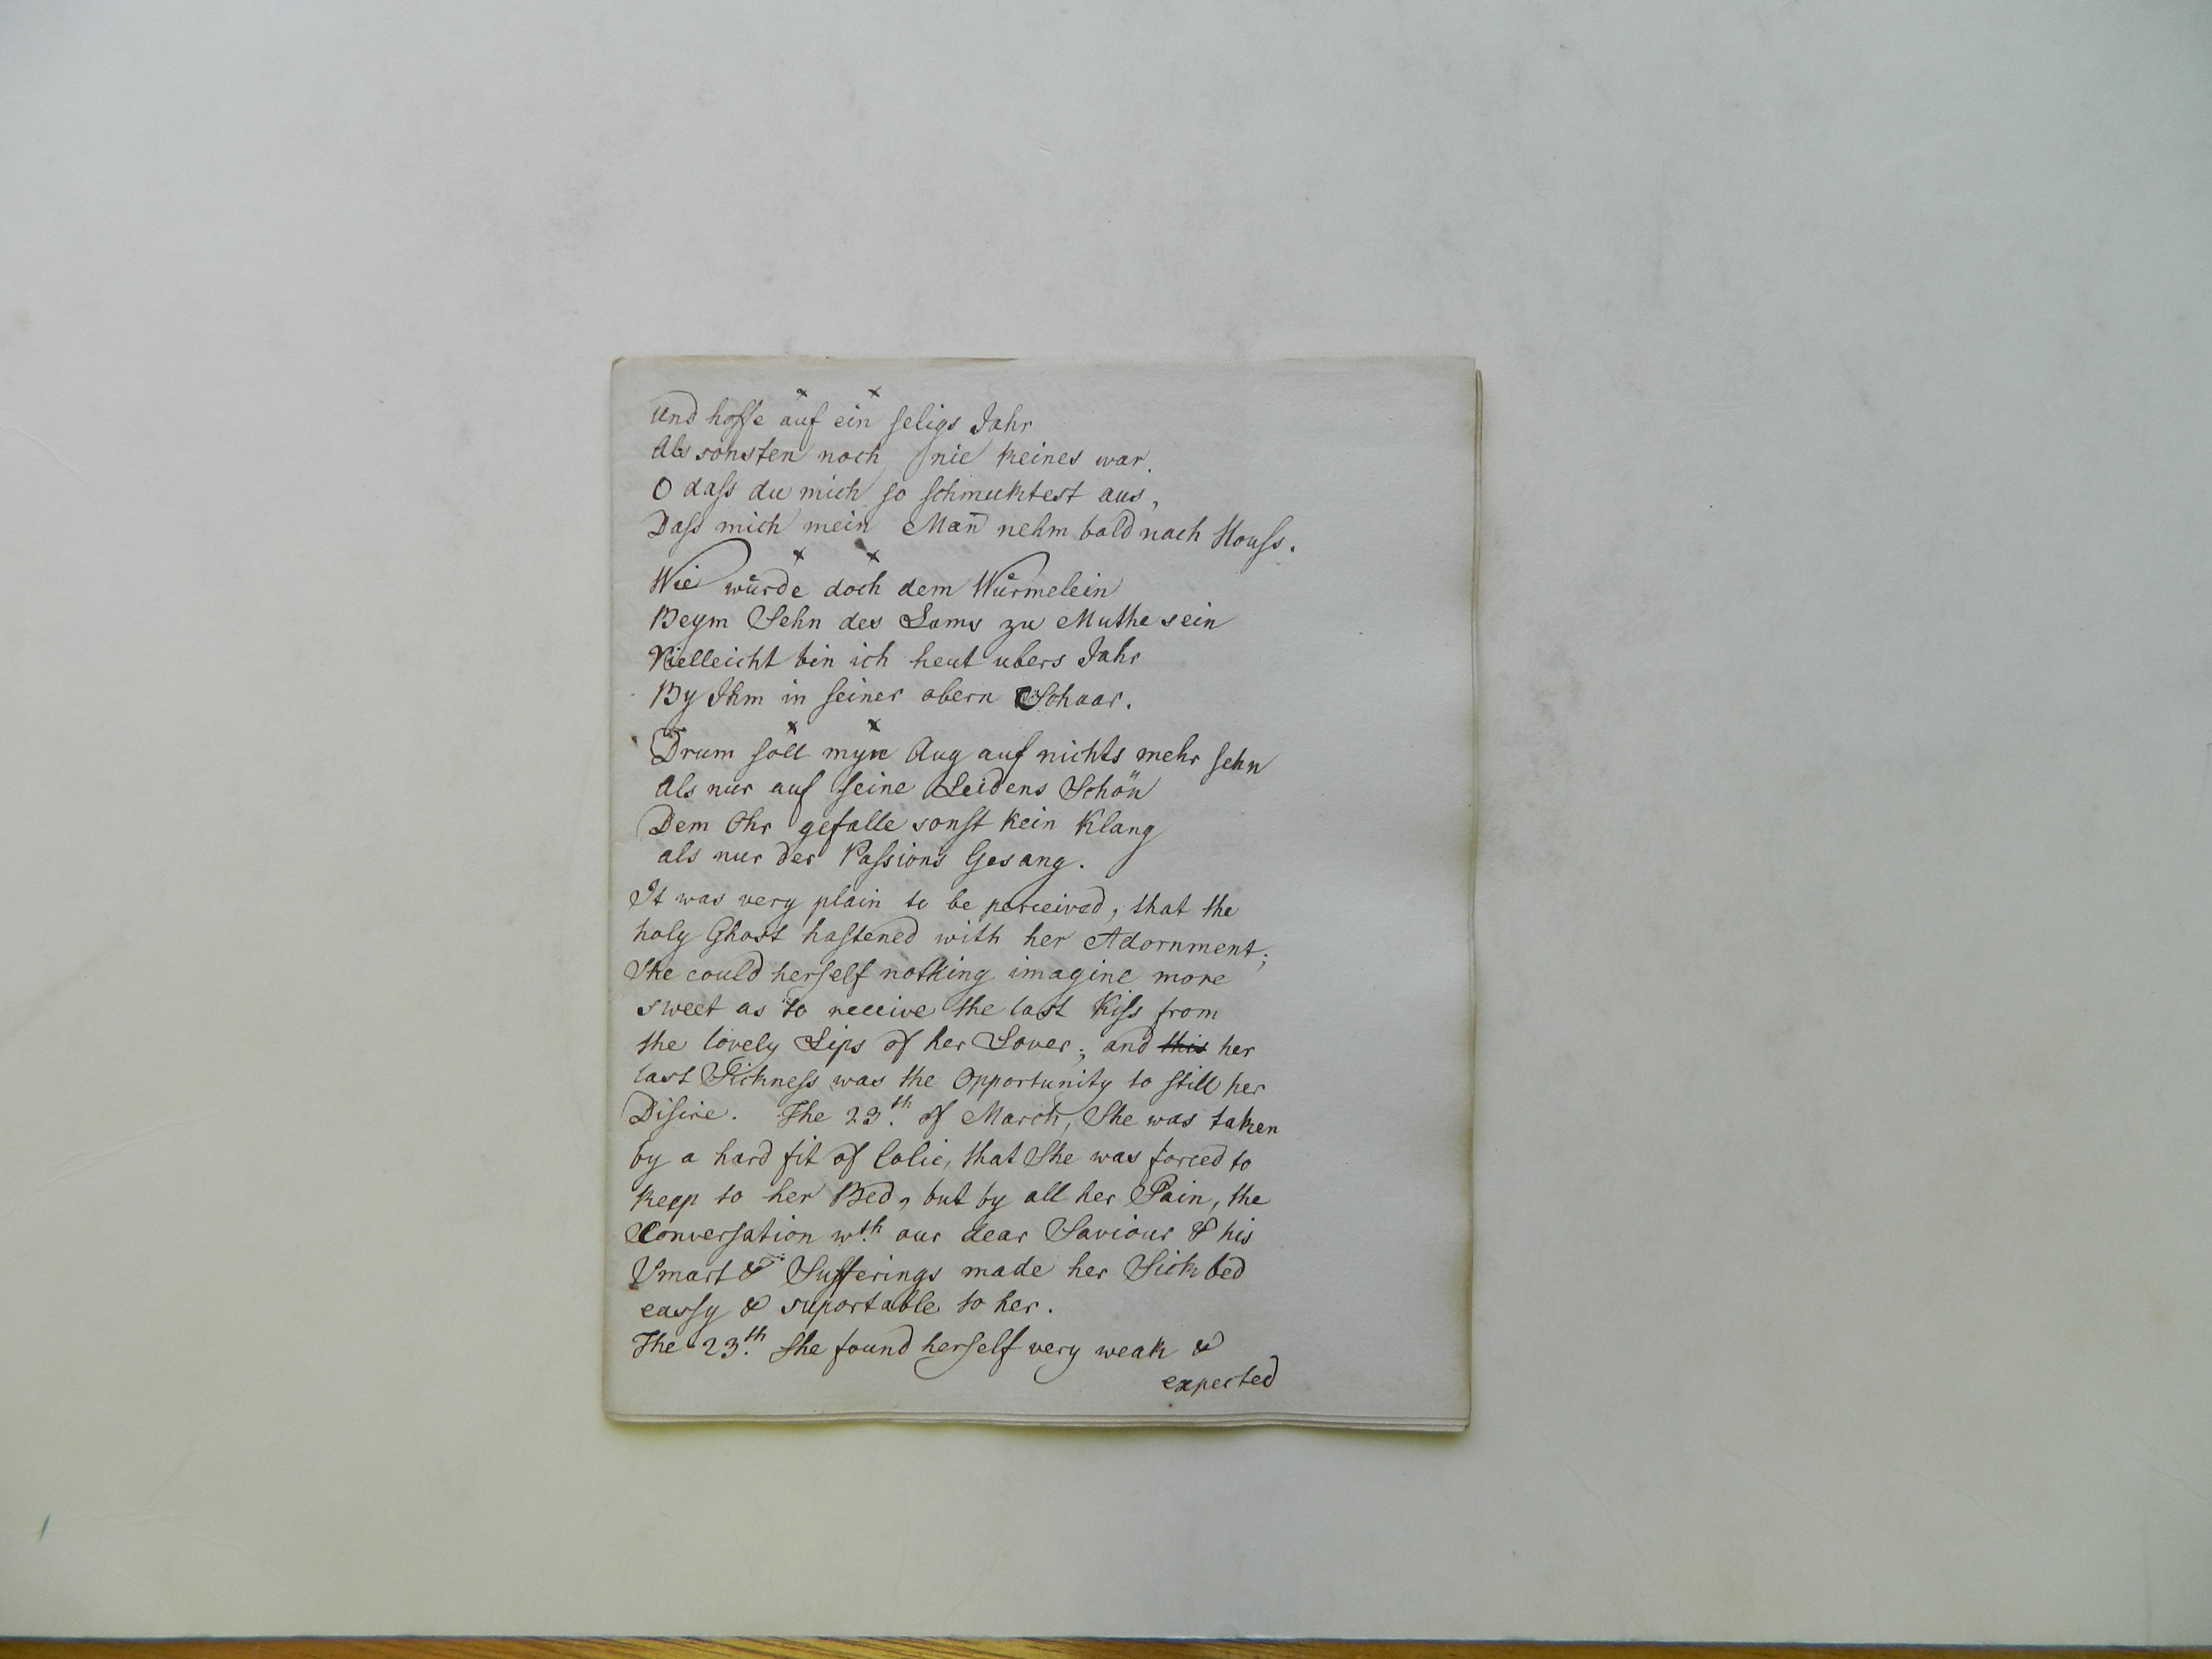 x x
und hoffe auf ein seligs Jahr
Als sonsten noch nie keines war.
O dass du mich so schmuktest aus,
Dass mich mein Mañ nehm bald nach Houss.
x x
Wie würde doch dem Würmelein
Beym Sehn des Lams zu Muthe sein
Vielleicht bin ich heut ubers Jahr
By Ihm in seiner obern Schaar.
x x
Drum soll myn Aug auf nichts mehr sehn
Als nur auf seine Leidens Schön
Dem Ohr gefalle sonst kein Klang
als nur der Passions Gesang.
It was very plain to be perceived, that the
holy Ghost hastened with her Adornment;
She could herself nothing imagine more
sweet as to receive the last Kiss from
the lovely Lips of her Lover; and this her
last Sickness was the Opportunity to still her
Disire. The 23th. of March, She was taken
by a hard fit of Colic, that She was forced to
keep to her Bed, but by all her Pain, the
Conversation wth. our dear Saviour & his
Smart & Sufferings made her Sick bed
eassy & suportable to her.
The 23th. She found herself very weak &
expected